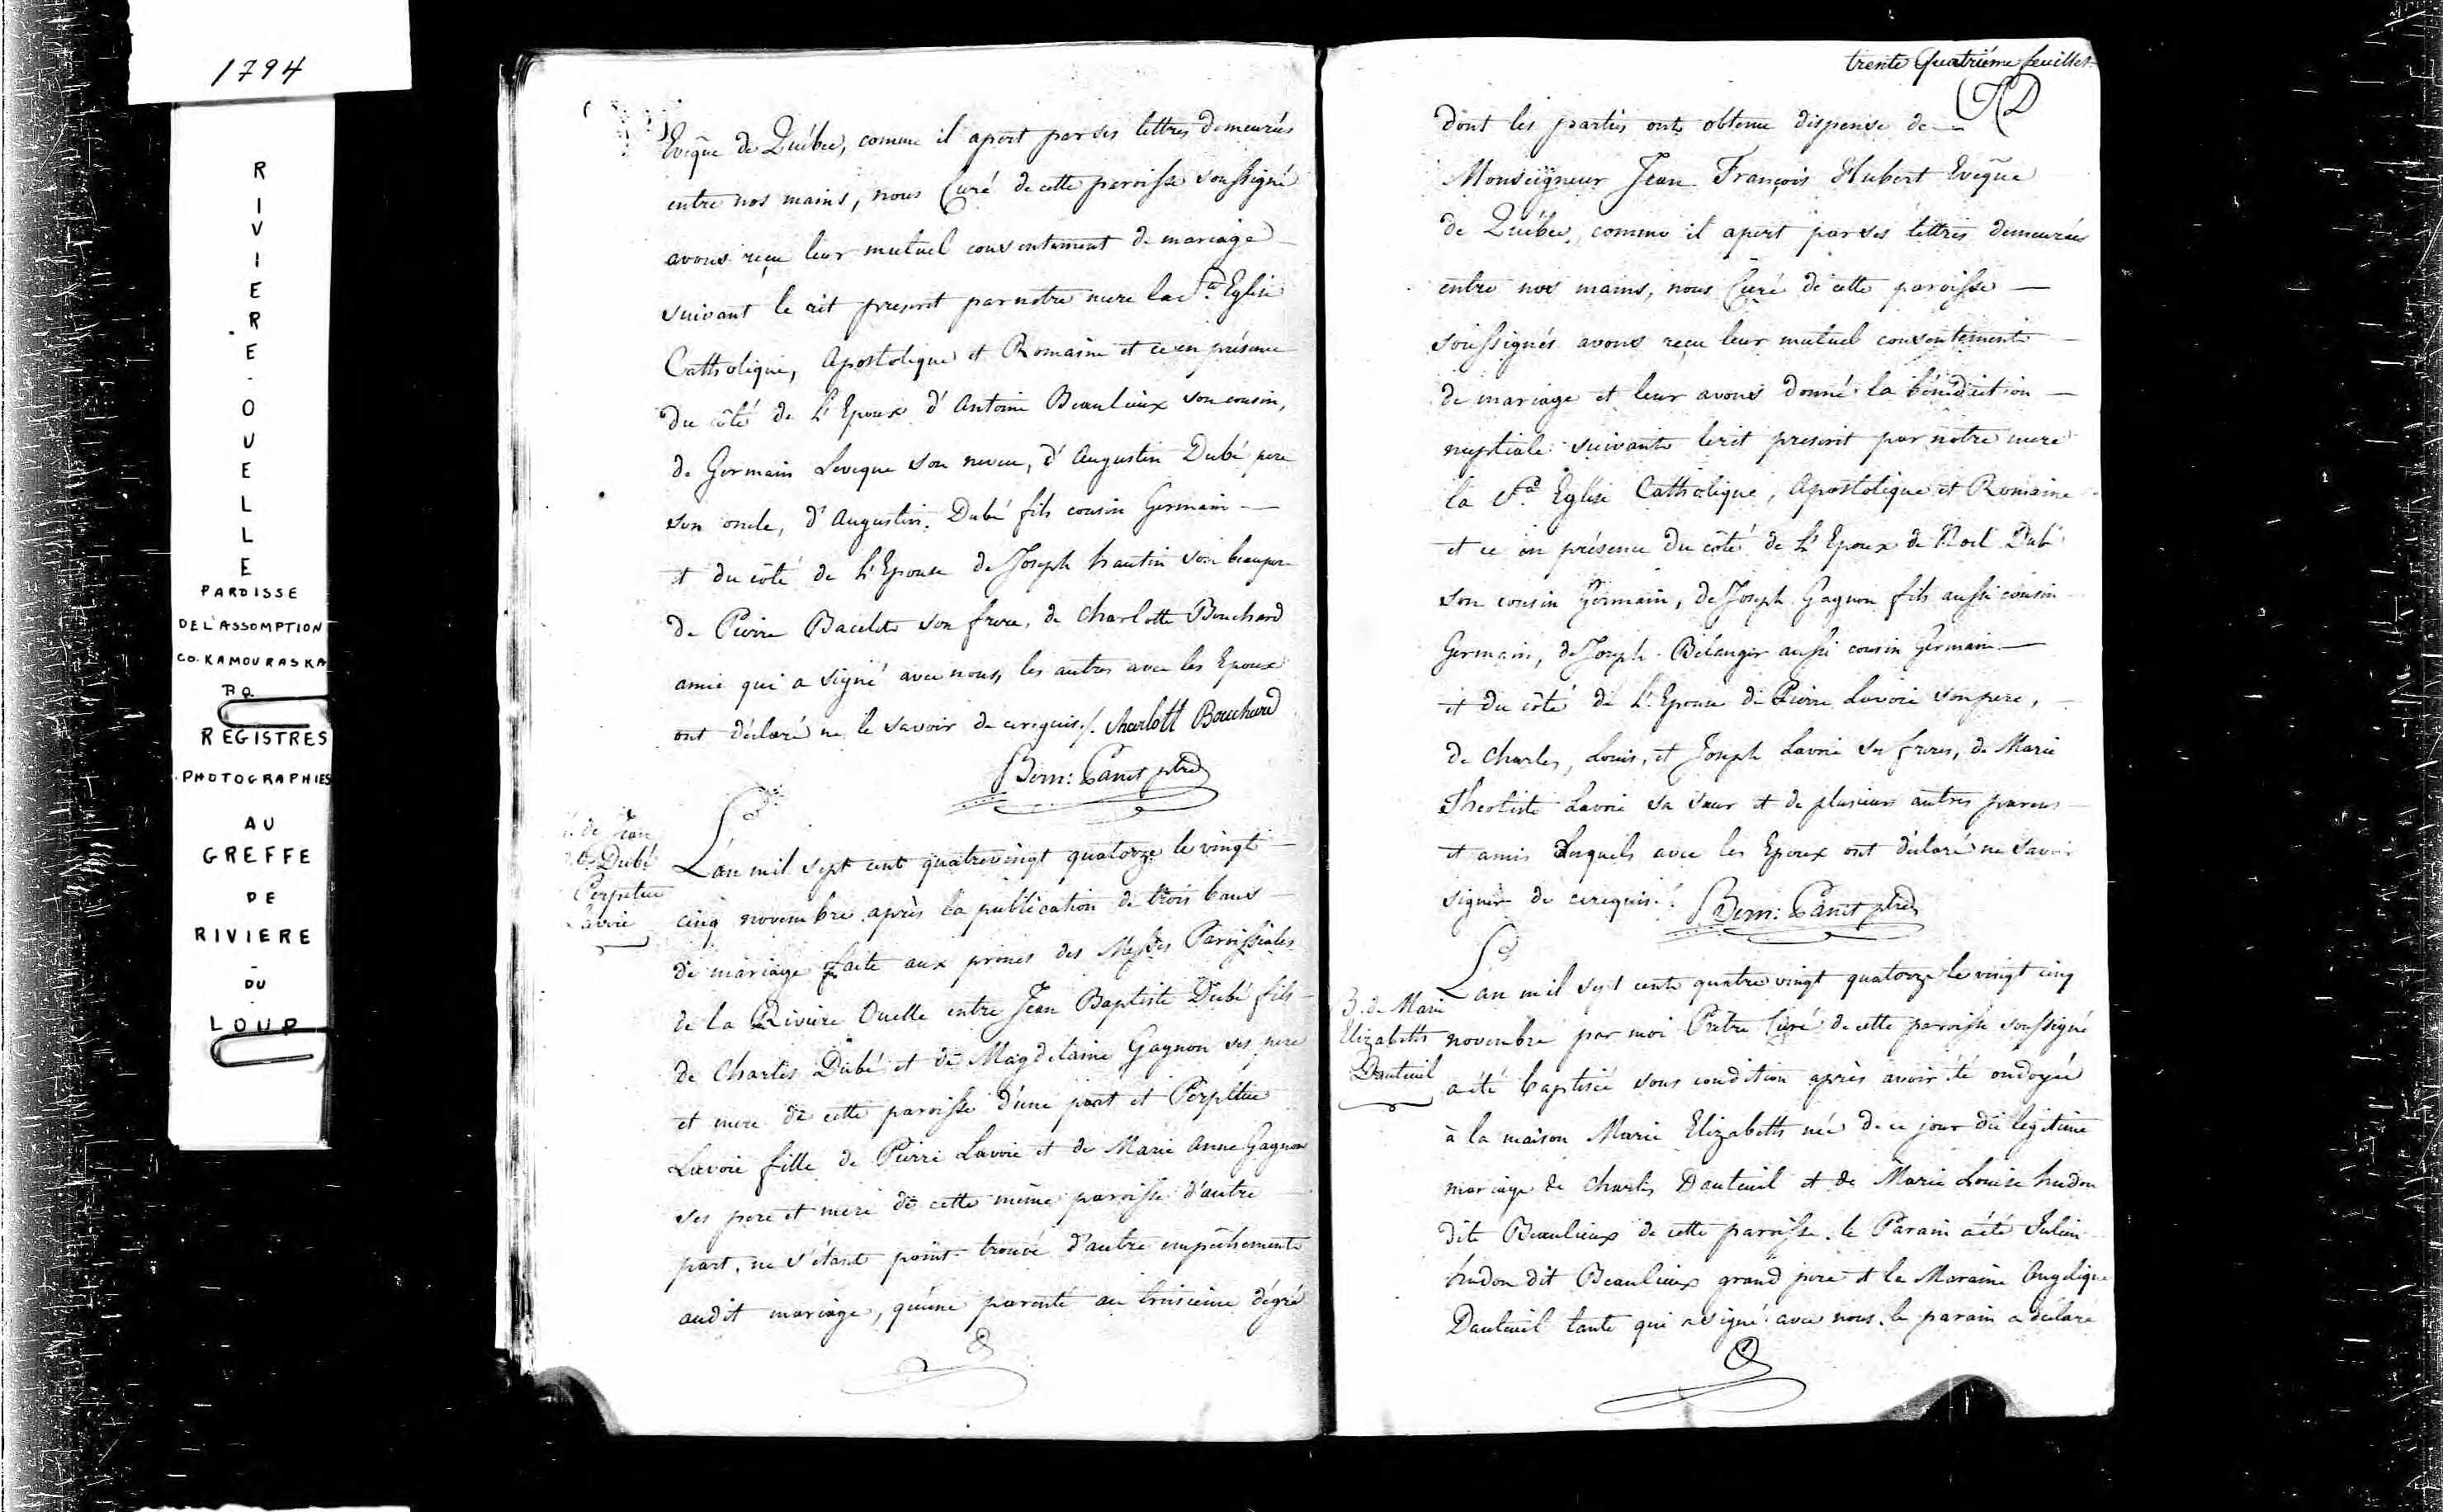 1794
R
I
V
I
E
R
E
-
O
U
E
L
L
E
PAROISSE
DE L'ASSOMPTION
CO. KAMOURASKA
P.Q.
REGISTRES
PHOTOGRAPHIES
AU
GREFFE
DE
RIVIERE
-
DU
LOUP
Evêque de Québec, comme il apert par ses lettres demeurées
entre nos mains, nous Curé de cette paroisse soussigné
avons reçu leur mutuel consentement de mariage
suivant le rit prescrit par notre mere la Ste Eglise
Catholique, Apostolique et Romaine et ce en présence
du côté de L'Epoux d'Antoine Beaulieux son cousin,
de Germain Leveque son neveu, d'Augustin Dubé pere
son oncle, d'Augustin Dubé fils cousin Germain
et du côté de L'Epouse de Joseph hautin son beaupere
de Pierre Bacelet son frere, de Charlotte Bouchard
amie qui a signé avec nous, les autres avec les Epoux
ont déclaré ne le savoir de ce requis ./. Charlott Bouchard
Bern: Panet ptre
M. de Jean
Bte Dubé
Perpetue
Lavoie
L'an mil sept cent quatrevingt quatorze le vingt
cinq novembre après la publication de trois bans
de mariage faite aux prones des Messes Paroissiales
de la Riviere Ouelle entre Jean Baptiste Dubé fils
de Charles Dubé et de Magdelaine Gagnon ses pere
et mere de cette paroisse d'une part et Perpetue
Lavoie fille de Pierre Lavoie et de Marie Anne Gagnon
ses pere et mere de cette même paroisse d'autre
part, ne s'étant point trouvé d'autre empêchement
audit mariage, qu'une parenté au troisieme dégré
trente Quatriéme feuillet
dont les parties ont obtenu dispense de
Monseigneur Jean François Hubert Evêque
de Québec, comme il apert par ses lettres demeurées
entre nos mains, nous Curé de cette paroisse
soussignés avons reçu leur mutuel consentement
de mariage et leur avons donné la bénédiction
nuptiale suivant le rit prescrit par notre mere
la Ste Eglise Catholique, Apostolique et Romaine
et ce en présence du côté de L'Epoux de Noel Dubé
son cousin Germain, de Joseph Gagnon fils aussi cousin
Germain, de Joseph Bélanger aussi cousin Germain
et du côté de L'Epouse de Pierre Lavoie son pere,
de Charles, Louis, et Joseph Lavoie ses freres, de Marie
Theotiste Lavoie sa sœur et de plusieurs autres parens
et amis lesquels avec les Epoux ont déclaré ne savoir
signer de ce requis ./. Bern: Panet ptre
B. de Marie
Elizabeth
Dauteuil
L'an mil sept cent quatre vingt quatorze le vingt cinq
novembre par moi Prêtre Curé de cette paroisse soussigné
a été baptisée sous condition après avoir été ondoyée
à la maison Marie Elizabeth née de ce jour du légitime
mariage de Charles Dauteuil et de Marie Louise hudon
dit Beaulieux de cette paroisse. le Parain a été Julien
hudon dit Beaulieux grand pere et la Maraine Angelique
Dauteuil tante qui a signé avec nous. le parain a déclaré